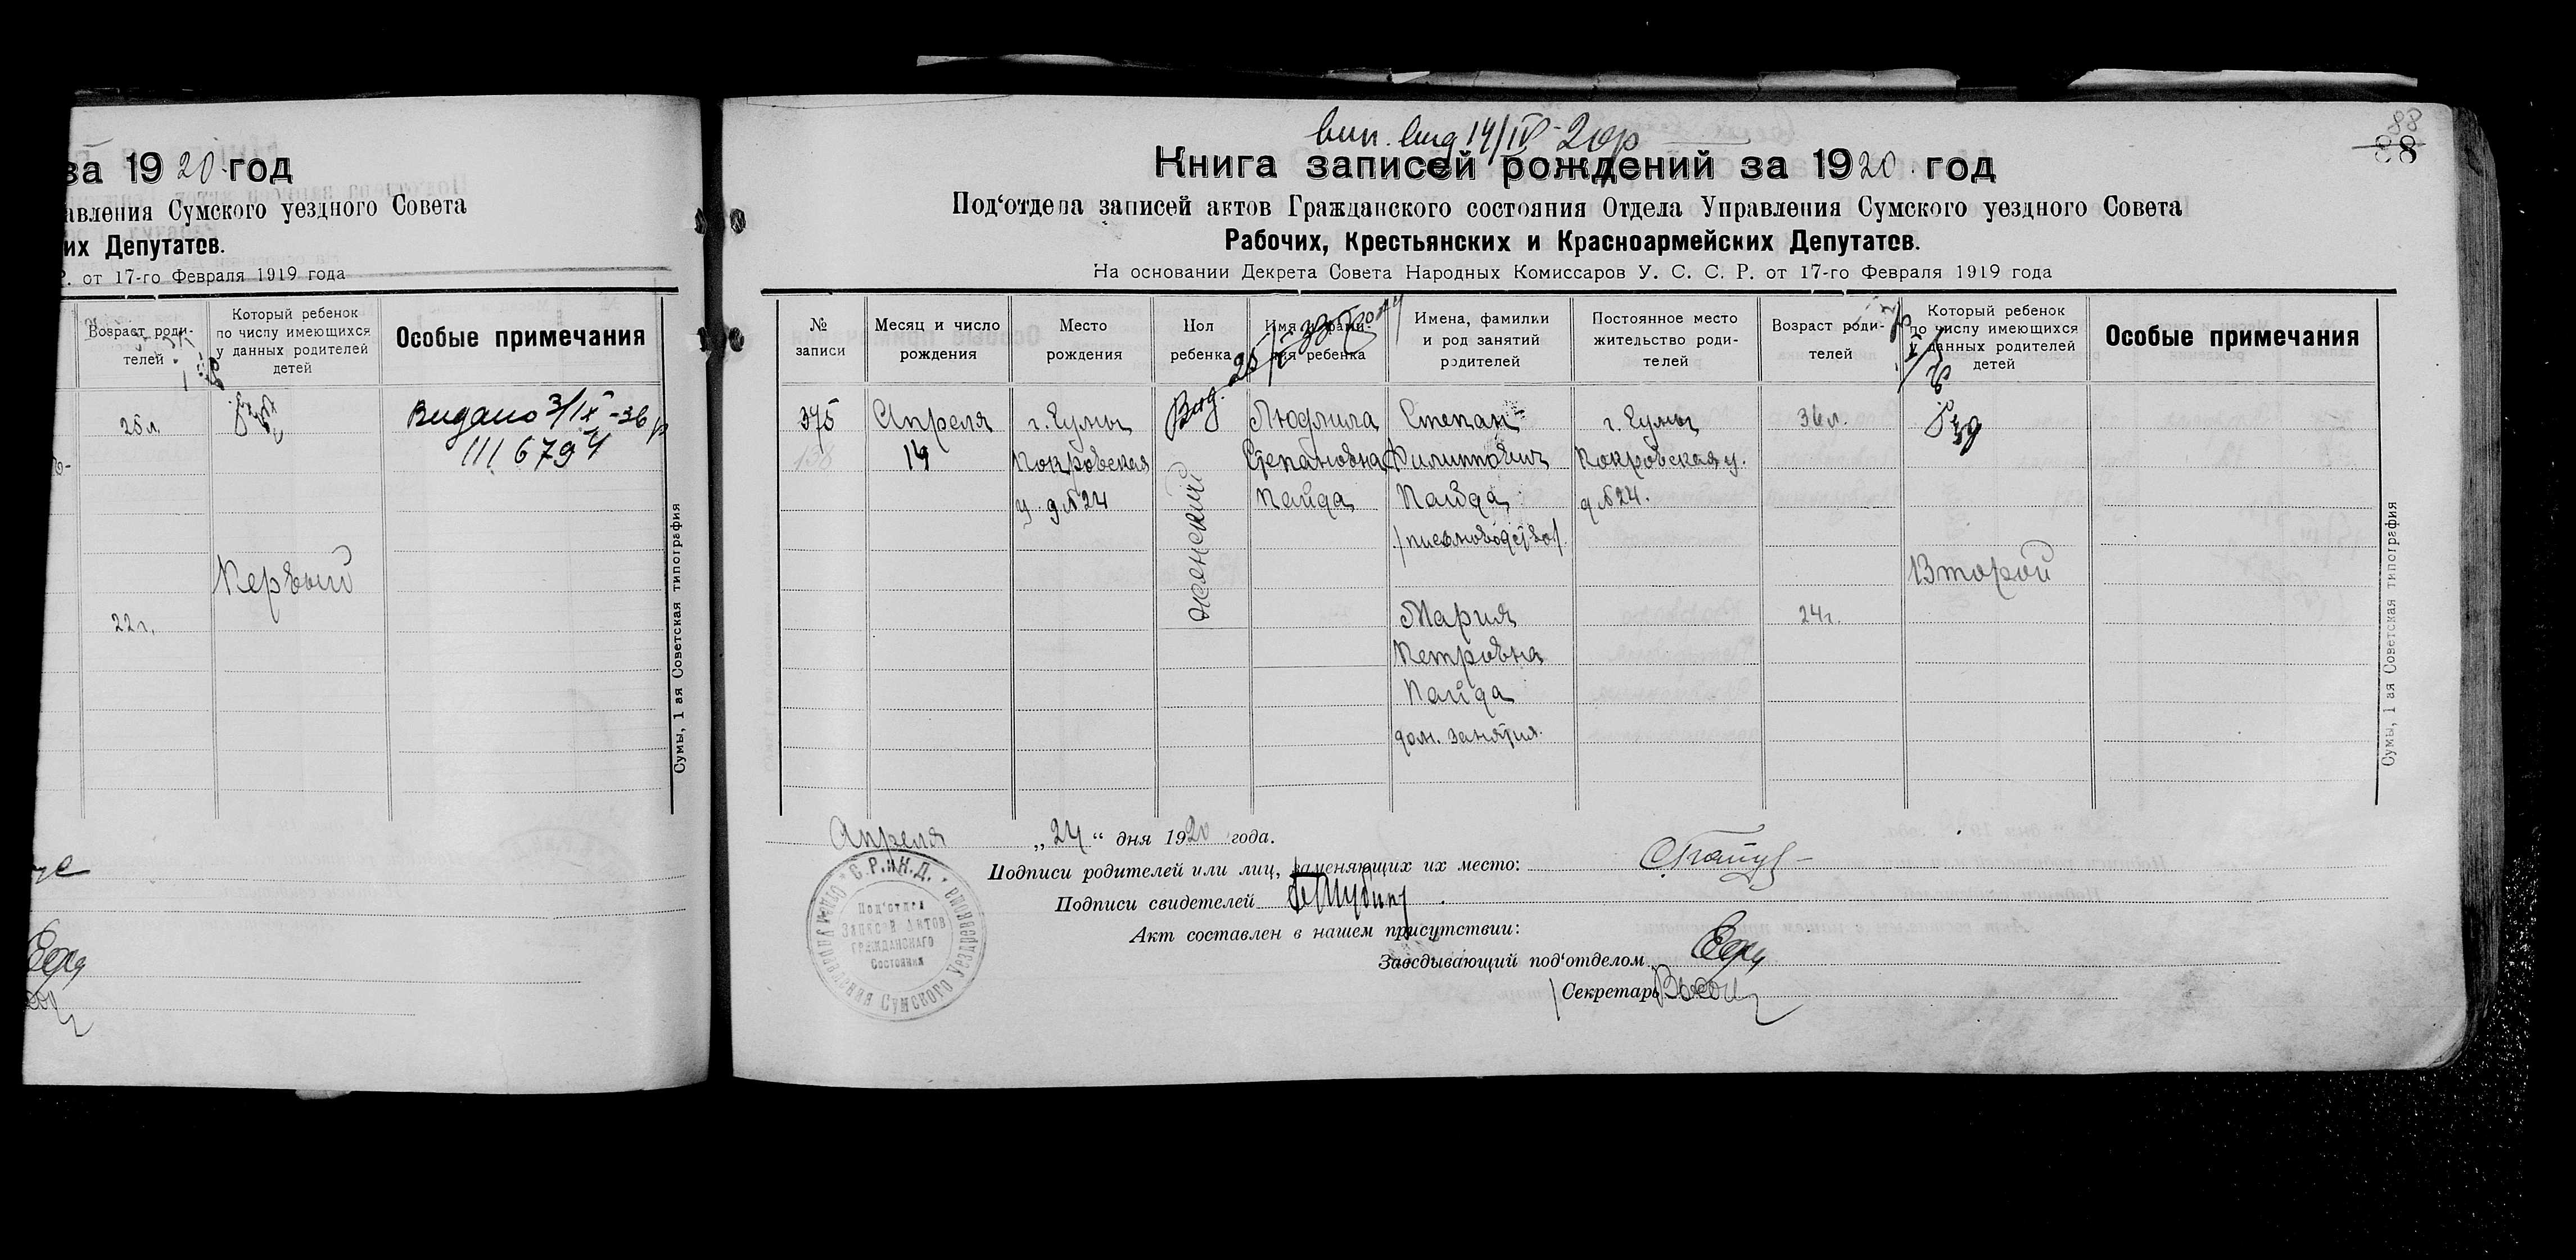 за 1920 год
авления Сумского уездного Совета
их Депутатов.
Р. от 17-го Февраля 1919 года
Возраст роди-
телей
Который ребенок
по числу имеющихся
у данных родителей
детей
Особые примечания
25 л.
Видано 3/IX-36 р
111 6794
Первый
22 г.
Сумы, 1 ая Советская типография
88
88
14/IV-20р
Книга записей рождений за 1920 год
Под‘отдела записей актов Гражданского состояния Отдела Управления Сумского уездного Совета
Рабочих, Крестьянских и Красноармейских Депутатов.
На основании Декрета Совета Народных Комиссаров У. С. С. Р. от 17-го Февраля 1919 года
№
записи
Месяц и число
рождения
Место
рождения
Пол
ребенка
Имя и фами-
лия ребенка
Имена, фамилии
и род занятий
родителей
Постоянное место
жительство роди-
телей
Возраст роди-
телей
Который ребенок
по числу имеющихся
у данных родителей
детей
Особые примечания
375
Апреля
14
г. Сумы
Покровская
у д №24
Вид.
женский
Людмила
Степановна
Пайда
Степан
Филиппович
Пайда
/письмоводство/.
Мария
Петровна
Пайда
дом. занятия.
г. Сумы
Покровская у.
д №24.
36 л.
24 г.
Второй
Сумы, 1 ая Советская типография
Апреля „24“ дня 1920 года.
Подписи родителей или лиц, заменяющих их место:
Подписи свидетелей
Акт составлен в нашем присутствии:
Заведывающий под‘отделом
Секретарь
С.Р.и К.Д. Отдел Управления Сумского Уездревкома
Под‘отдел
Записей Актов
Гражданскаго
Состояния